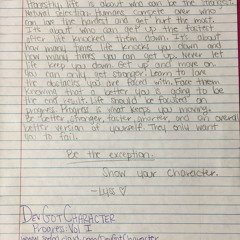 Honestly, life is about who can be the strongest.
Natural Selection. Humans compete over who
can love the hardest and get hurt the most.
It's about who can get up the fastest
after life knocked them down. It's about
how many times life knocks you down and
how many times you can get up. Never let
life keep you down. Get up and move on.
You can only get stronger. Learn to love
the obstacles you are faced with. Face them
knowing that a better you is going to be
the end result. Life should be focused on
progress. Progress is what keeps you moving.
Be better, stronger, faster, smarter, and an overall
better version of yourself. They only want
you to fail.
Be the exception.
Show your character.
DevGotCharacter
Progress: Vol I